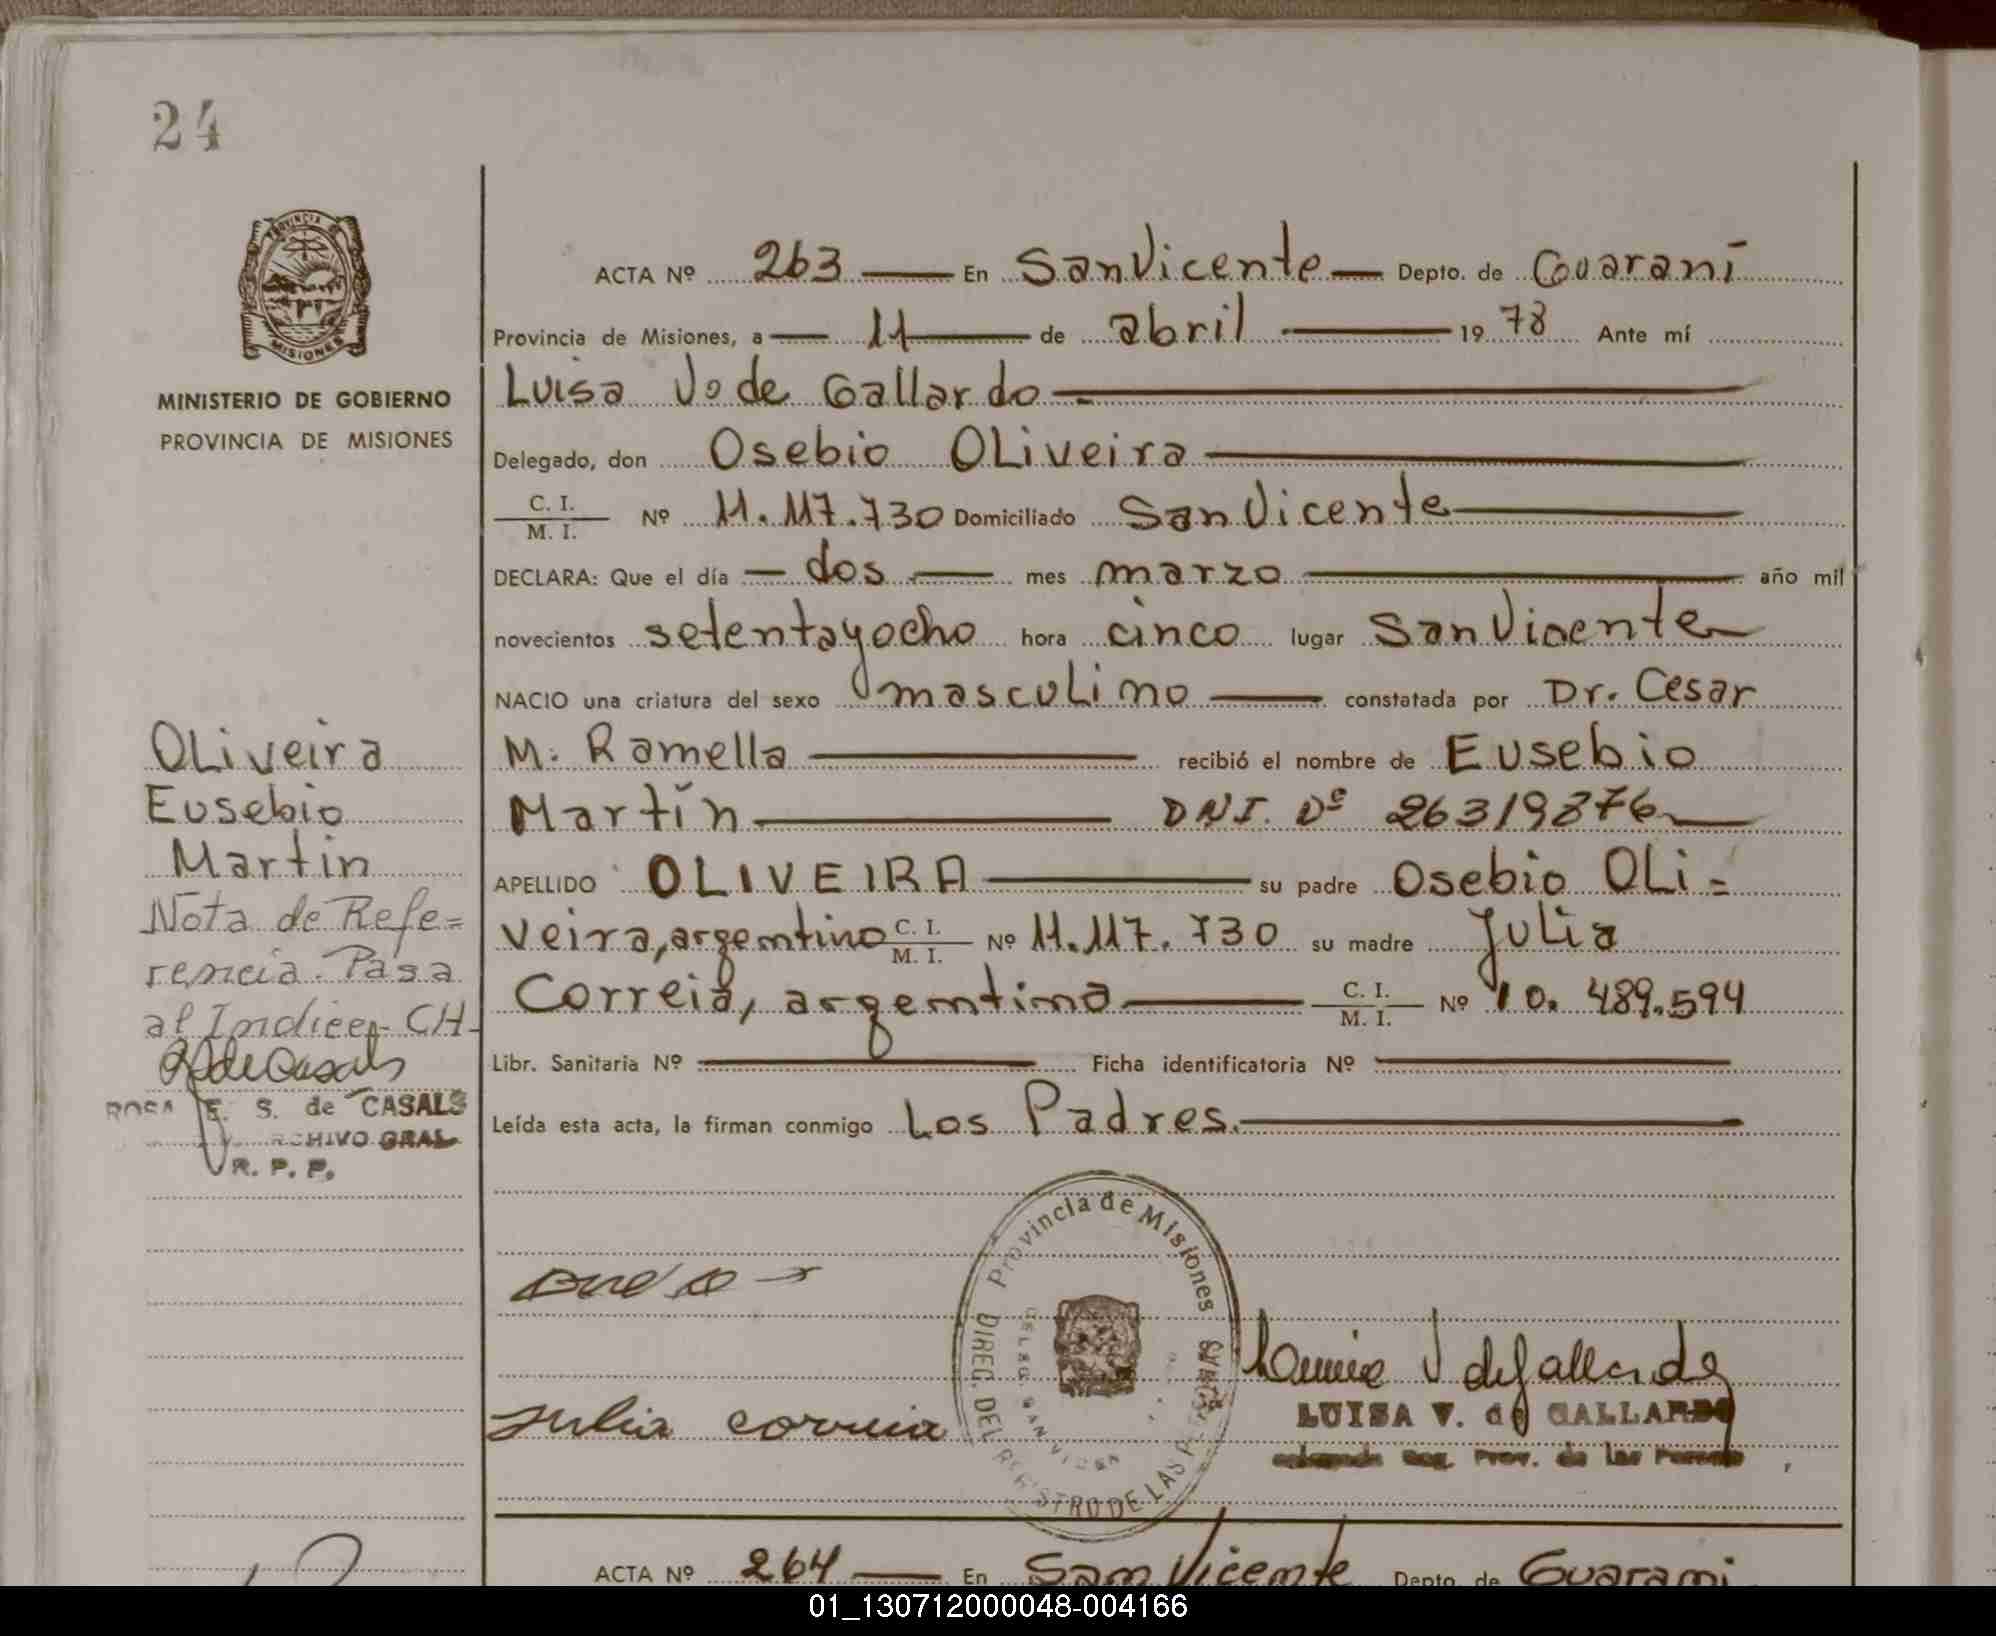 24
PROVINCIA DE
MISIONES
MINISTERIO DE GOBIERNO
PROVINCIA DE MISIONES
ACTA Nº 263 En San Vicente Depto. de Guaraní
Provincia de Misiones, a 11 de abril 1978 Ante mí
Luisa V. de Gallardo
Delegado, don Osebio OLiveira
C. I.
M. I. Nº 11.117.730 Domiciliado San Vicente
DECLARA: Que el día dos mes marzo año mil
novecientos setentayocho hora cinco lugar San Vicente
NACIO una criatura del sexo masculino constatada por Dr. Cesar
M. Ramella recibió el nombre de Eusebio
Martín DNI. Nº 26319876
APELLIDO OLIVEIRA su padre Osebio OLi=
veira, argentino C. I.
M. I. Nº 11.117.730 su madre Julia
Correia, argentina C. I.
M. I. Nº 10.489.594
Libr. Sanitaria Nº Ficha identificatoria Nº
Leída esta acta, la firman conmigo Los Padres.
OLiveira
Eusebio
Martin
Nota de Refe=
rencia. Pasa
al Indice - CH-
ROSA E. S. de CASALS
ARCHIVO GRAL
R. P. P.
Provincia de Misiones
DIREC. DEL REGISTRO DE LAS
DELEG. SAN VICEN
Julia correia
Luisa V de Gallardo
LUISA V. de GALLARDO
Reg. Prov. de las Personas
ACTA Nº 264 En San Vicente Depto. de Guaraní
01_130712000048-004166